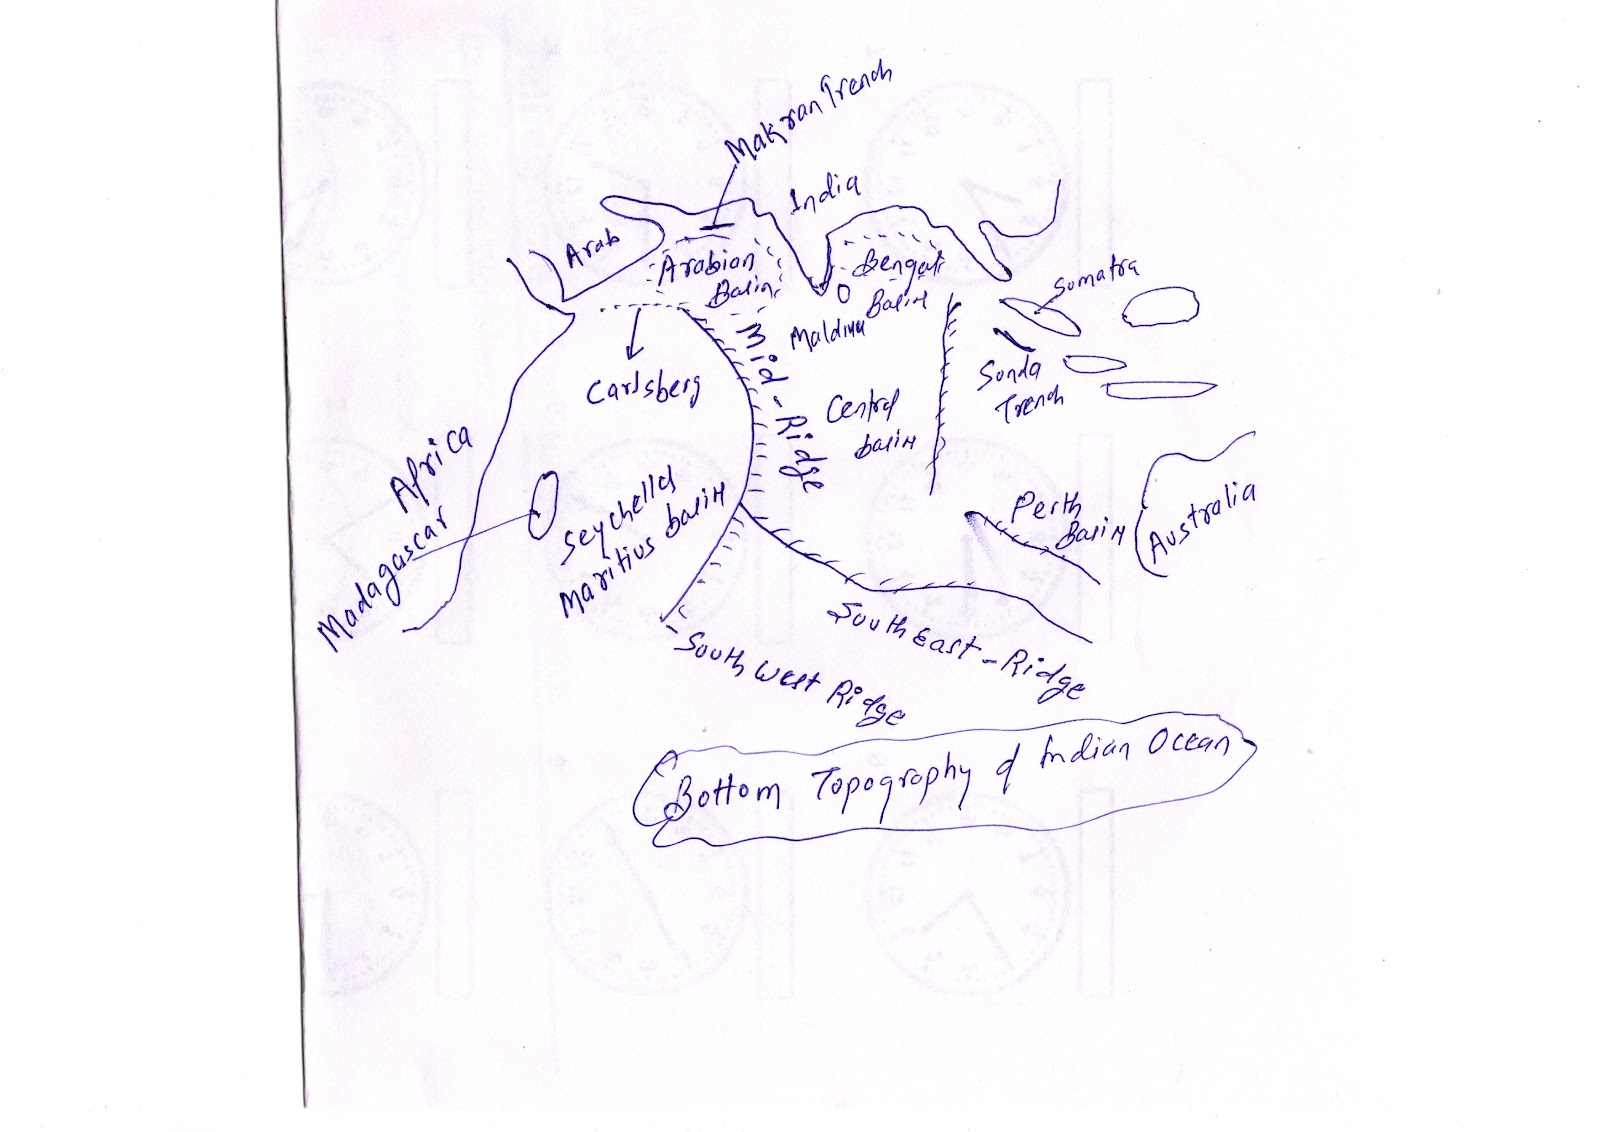 Makran Trench
India
Arab
Arabian
Basin
Bengal
Basin
Sumatra
Maldive
Mid-Ridge
Carlsberg
Sonda
Trench
Central
basin
Africa
Madagascar
Seychelles
Maritius basin
Perth
Basin
Australia
South East-Ridge
South West Ridge
Bottom Topography of Indian Ocean